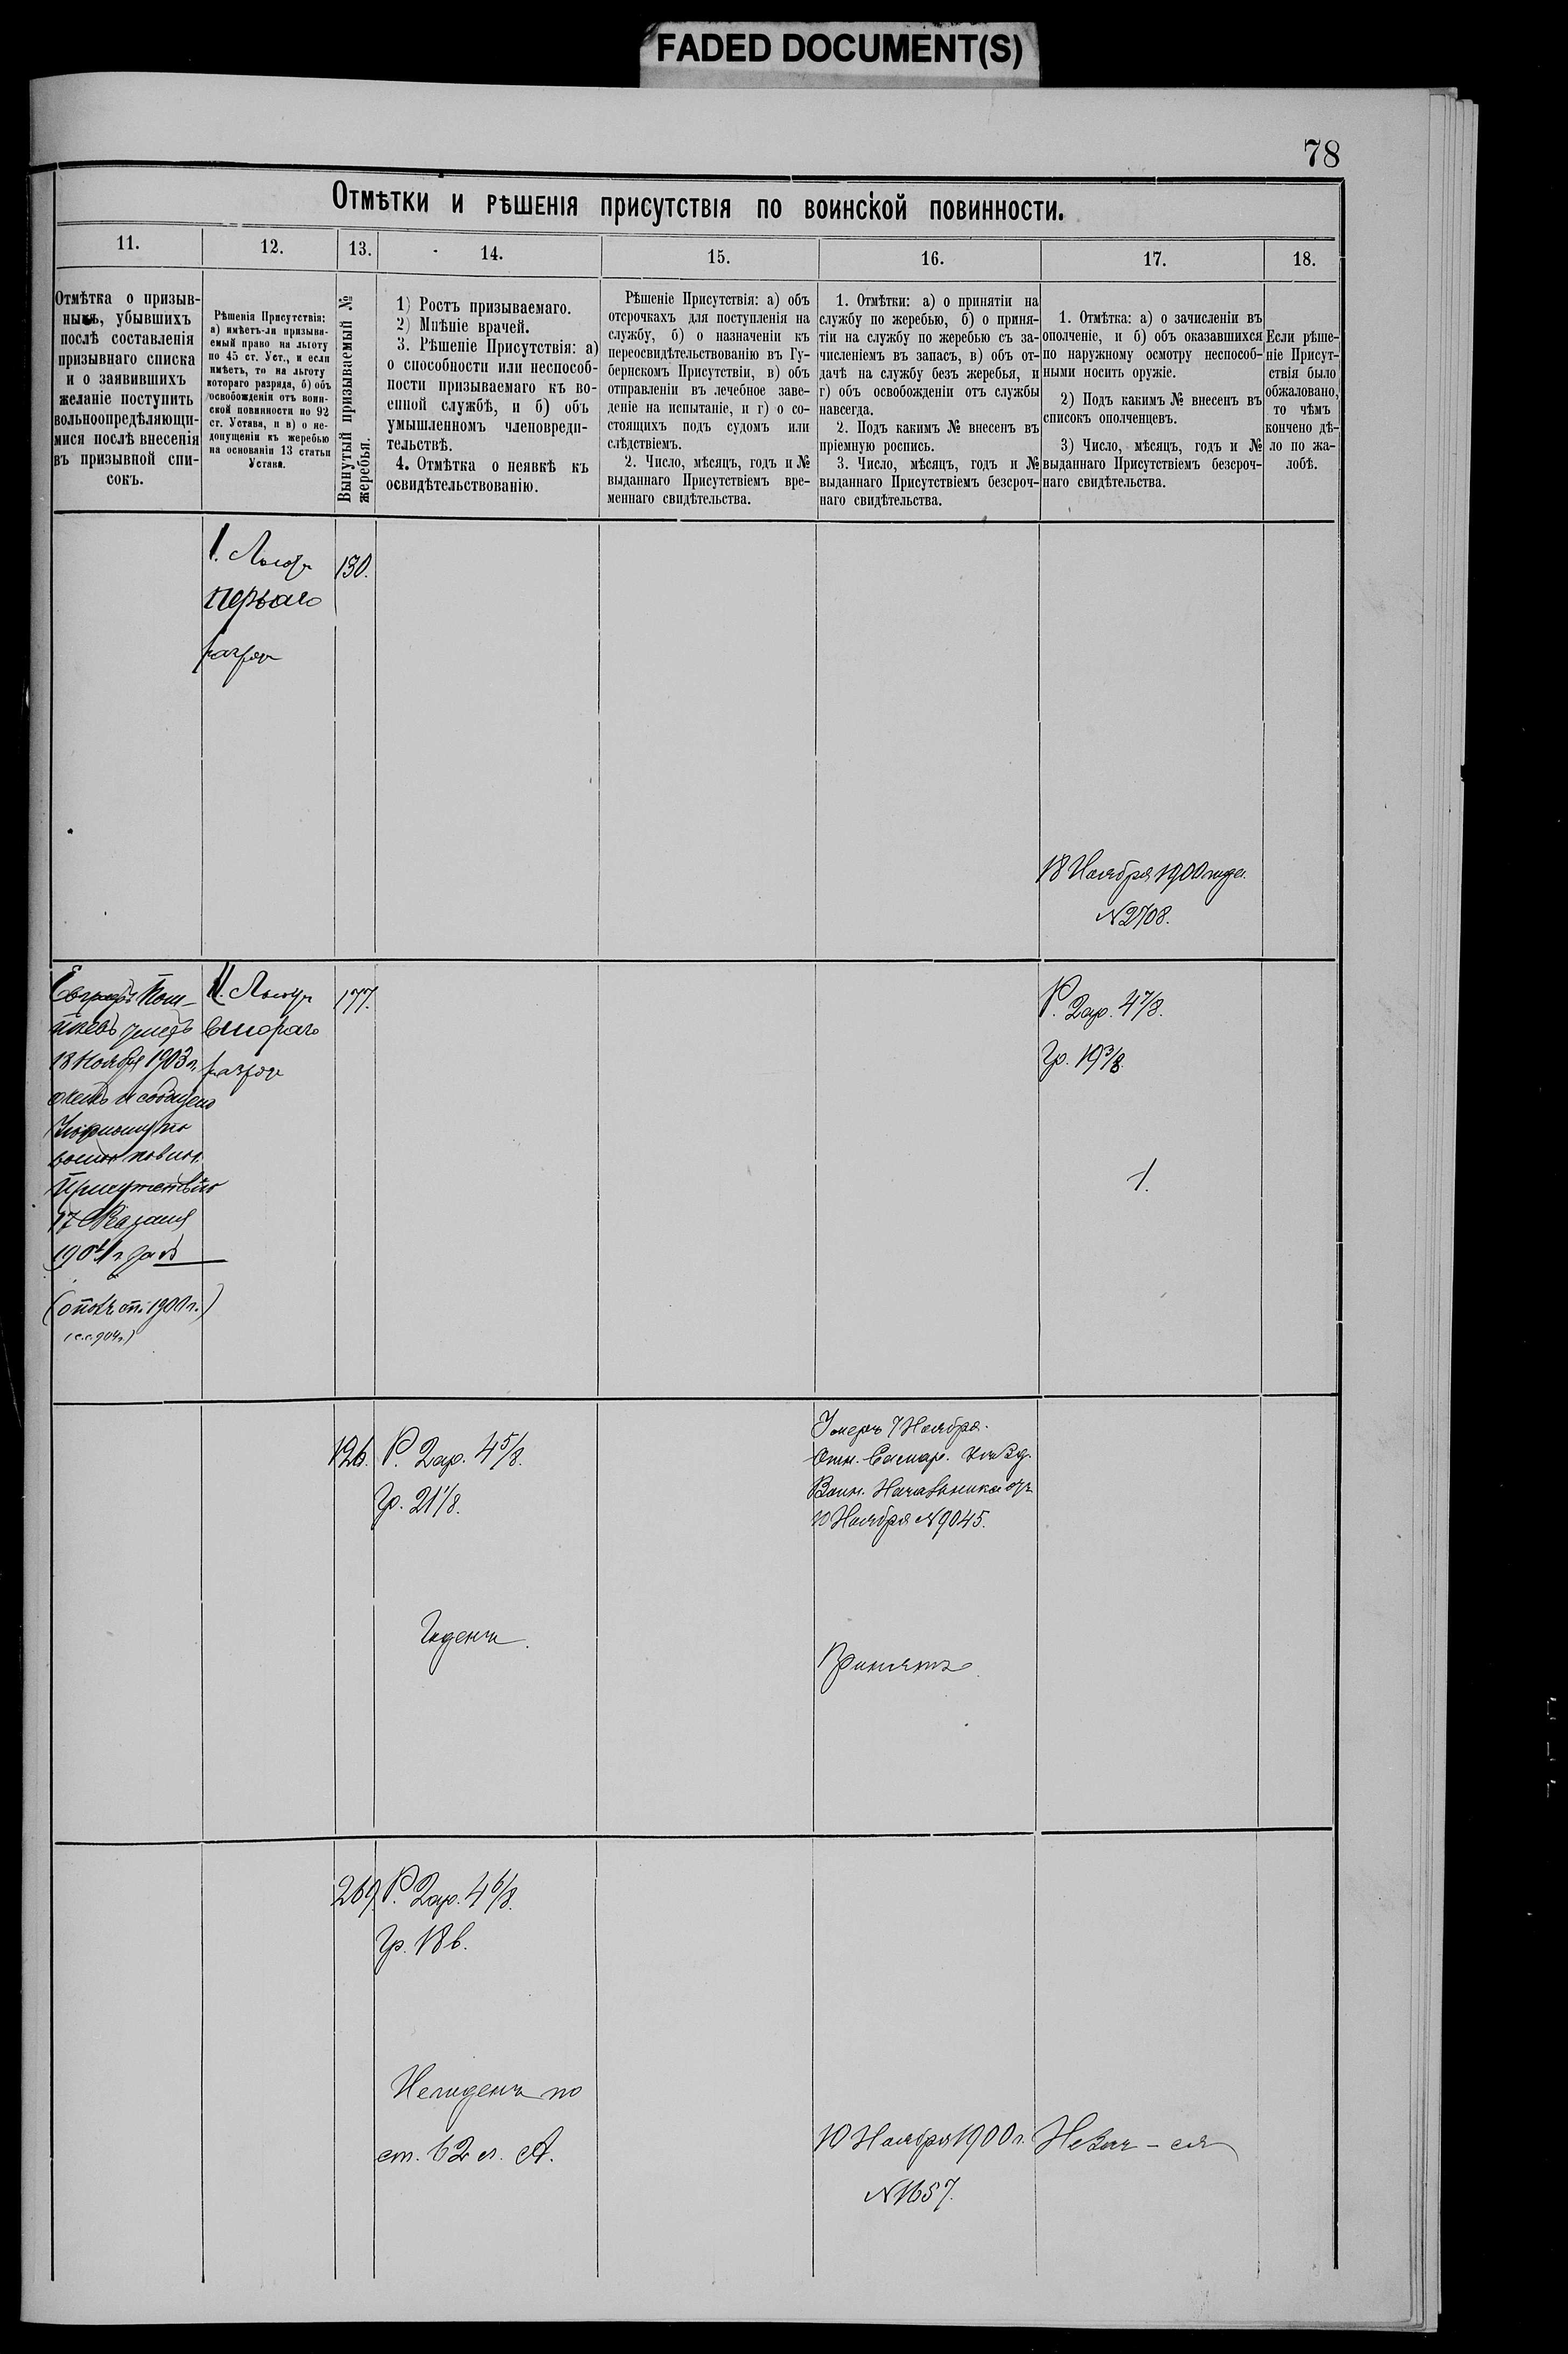 FADED DOCUMENT(S)
78
Отмѣтки и рѣшенія присутствія по воинской повинности.
11.
12.
13.
14.
15.
16.
17.
18.
Отмѣтка о призыв-
ныхъ, убывшихъ
послѣ составленія
призывнаго списка
и о заявившихъ
желаніе поступить
вольноопредѣляющи-
мися послѣ внесенія
въ призывной спи-
сокъ.
Рѣшенія Присутствія:
а) имѣетъ-ли призыва-
емый право на льготу
по 45 ст. Уст., и если
имѣетъ, то на льготу
котораго разряда, б) объ
освобожденіи отъ воин-
ской повинности по 92
ст. Устава, и в) о не-
допущеніи къ жеребью
на основаніи 13 статьи
Устава.
Вынутый призываемый №
жеребья.
1) Ростъ призываемаго.
2) Мнѣніе врачей.
3. Рѣшеніе Присутствія: а)
о способности или неспособ-
ности призываемаго къ во-
енной службѣ, и б) объ
умышленномъ членовреди-
тельствѣ.
4. Отмѣтка о неявкѣ къ
освидѣтельствованію.
Рѣшеніе Присутствія: а) объ
отсрочкахъ для поступленія на
службу, б) о назначеніи къ
переосвидѣтельствованію въ Гу-
бернскомъ Присутствіи, в) объ
отправленіи въ лечебное заве-
деніе на испытаніе, и г) о со-
стоящихъ подъ судомъ или
слѣдствіемъ.
2. Число, мѣсяцъ, годъ и №
выданнаго Присутствіемъ вре-
меннаго свидѣтельства.
1. Отмѣтки: а) о принятіи на
службу по жеребью, б) о приня-
тіи на службу по жеребью съ за-
численіемъ въ запасъ, в) объ от-
дачѣ на службу безъ жеребья, и
г) объ освобожденіи отъ службы
навсегда.
2. Подъ какимъ № внесенъ въ
пріемную роспись.
3. Число, мѣсяцъ, годъ и №
выданнаго Присутствіемъ безсроч-
наго свидѣтельства.
1. Отмѣтка: а) о зачисленіи въ
ополченіе, и б) объ оказавшихся
по наружному осмотру неспособ-
ными носить оружіе.
2) Подъ какимъ № внесенъ въ
списокъ ополченцевъ.
3) Число, мѣсяцъ, годъ и №
выданнаго Присутствіемъ безсроч-
наго свидѣтельства.
Если рѣше-
ніе Присут-
ствія было
обжаловано,
то чѣмъ
кончено дѣ-
ло по жа-
лобѣ.
I. Льгот
перваго
разряд
130.
18 Ноября 1900 года.
№ 2708.
Евграфъ
умеръ
18 Ноября 1903 г.
и сообщено
воинс повин.
Присутствію
17
1904 года
1900 г.)
II. Льгот
втораго
разряд
177.
Р. 2 ар. 4 7/8.
Гр. 19 3/8.
1.
126.
Р. 2 ар. 4 5/8.
Гр. 21 1/8.
Годенъ.
Умеръ 7 Ноября.
Отн. Самар. Уѣзд.
Воин. Начальника отъ
10 Ноября № 9045.
Принятъ.
269.
Р. 2 ар. 4 6/8.
Гр. 18 в.
Негоденъ по
ст. 62 л. А.
10 Ноября 1900 г.
№ 1657.